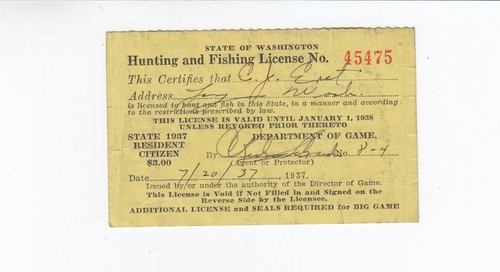 STATE OF WASHINGTON
Hunting and Fishing License No. 45475
This Certifies that C. J.
Address
is licensed to hunt and fish in this State, in a manner and according
to the restrictions prescribed by law.
THIS LICENSE IS VALID UNTIL JANUARY 1, 1938
UNLESS REVOKED PRIOR THERETO
STATE 1937 DEPARTMENT OF GAME,
RESIDENT
CITIZEN By No. 8-4
$3.00 (Agent or Protector)
Date 7/20/37, 1937.
Issued by/or under the authority of the Director of Game.
This License is Void if Not Filled in and Signed on the
Reverse Side by the Licensee.
ADDITIONAL LICENSE and SEALS REQUIRED for BIG GAME